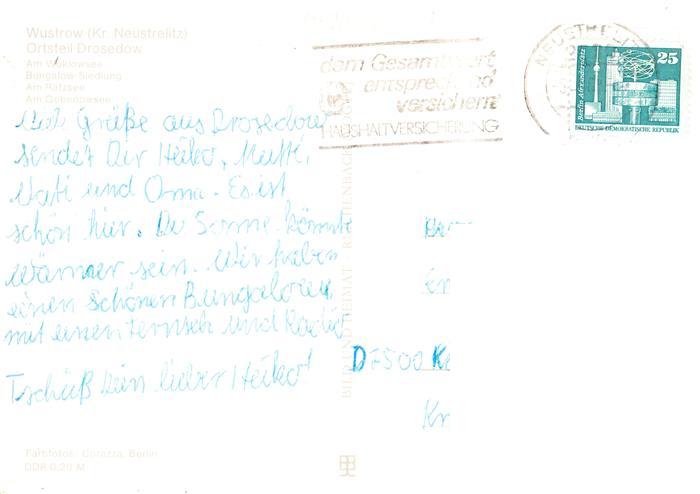 Wustrow (Kr. Neustrelitz)
Ortsteil Drosedow
Am Woklowsee
Bungalow-Siedlung
Am Rätzsee
Am Gobenowsee
dem Gesamtwert
entsprechend
versichern
HAUSHALTVERSICHERUNG
NEUSTRELITZ
25
Berlin, Alexanderplatz
DEUTSCHE DEMOKRATISCHE REPUBLIK
Viele Grüße aus Drosedow
sendet Dir Heiko, Mutti,
Vati und Oma. Es ist
schön hier. Die Sonne könnte
wärmer sein. Wir haben
einen schönen Bungalow
mit einen Fernseh und Radio
Tschüß Dein lieber Heiko!
D 7500
Kr
BILD UND HEIMAT REICHENBACH
Farbfotos: Corazza, Berlin
DDR 0,20 M